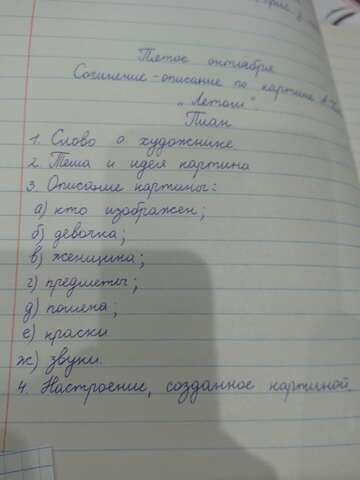 Пятое октября
Сочинение-описание по картине А.
„Летом".
План
1. Слово о художнике
2. Тема и идея картина
3. Описание картины:
а) кто изображен;
б) девочка;
в) женщина;
г) предметы;
д) поляна;
е) краски
ж) звуки.
4. Настроение, созданное картиной.